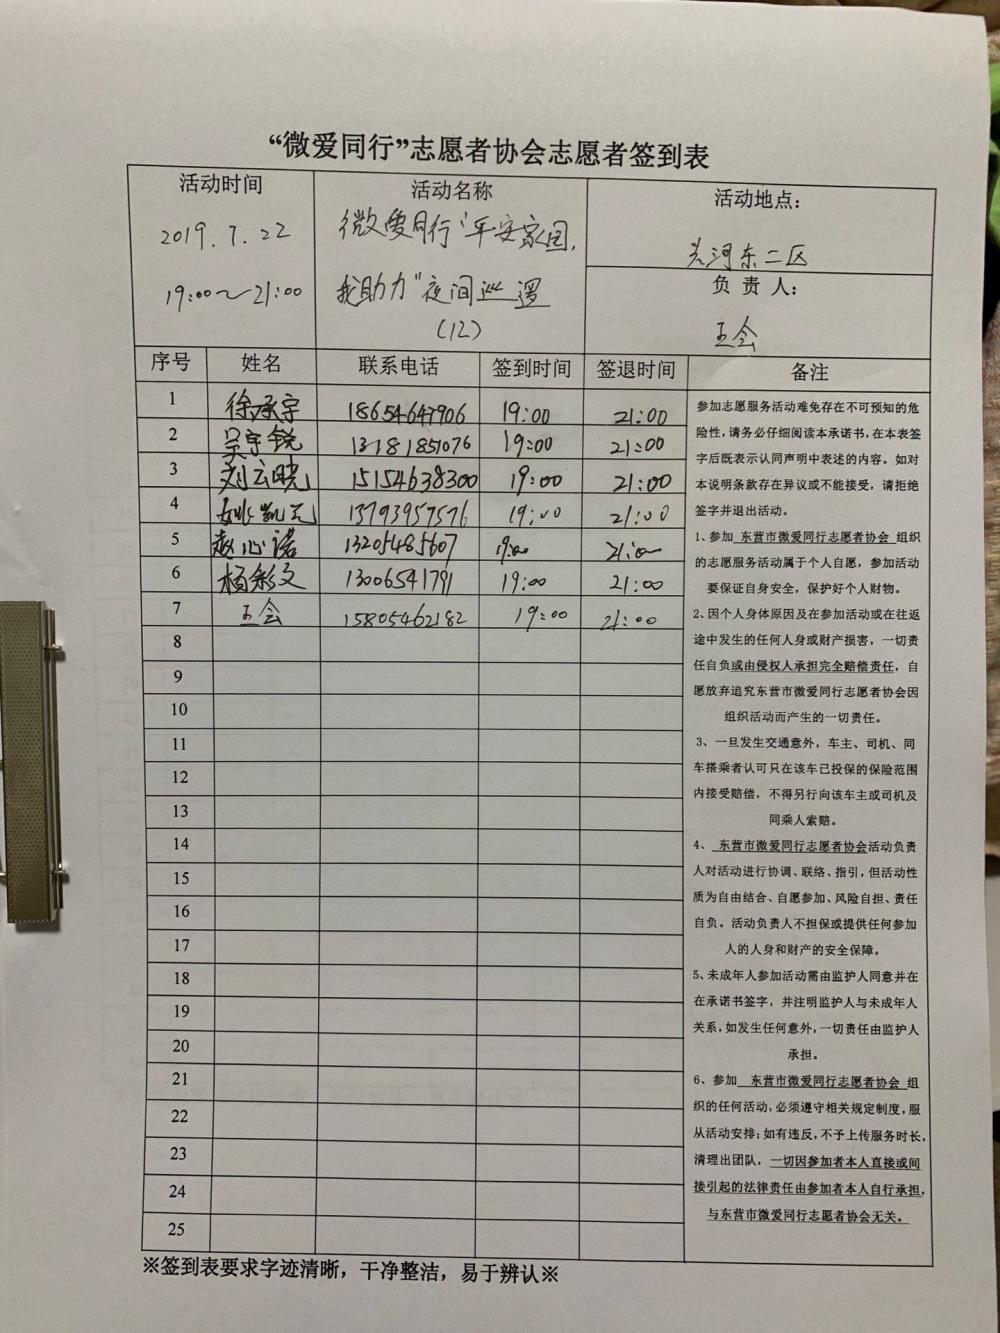 “微爱同行”志愿者协会志愿者签到表
活动时间
2019.7.22
19:00～21:00
活动名称
微爱同行“平安家园,
我助力”夜间巡逻
(12)
活动地点：
头河东二区
负 责 人：
王会
序号 姓名 联系电话 签到时间 签退时间 备注
1 徐承宇 18654647906 19:00 21:00
2 吴宇锐 13181851076 19:00 21:00
3 刘云晓 15154638300 19:00 21:00
4 姚凯元 13793957576 19:00 21:00
5 赵心诺 13205485607 19:00 21:00
6 杨彩文 13006541791 19:00 21:00
7 王会 15805462182 19:00 21:00
8
9
10
11
12
13
14
15
16
17
18
19
20
21
22
23
24
25
参加志愿服务活动难免存在不可预知的危
险性，请务必仔细阅读本承诺书，在本表签
字后既表示认同声明中表述的内容。如对
本说明条款存在异议或不能接受，请拒绝
签字并退出活动。
1、参加 东营市微爱同行志愿者协会 组织
的志愿服务活动属于个人自愿，参加活动
要保证自身安全，保护好个人财物。
2、因个人身体原因及在参加活动或在往返
途中发生的任何人身或财产损害，一切责
任自负或由侵权人承担完全赔偿责任，自
愿放弃追究东营市微爱同行志愿者协会因
组织活动而产生的一切责任。
3、一旦发生交通意外，车主、司机、同
车搭乘者认可只在该车已投保的保险范围
内接受赔偿，不得另行向该车主或司机及
同乘人索赔。
4、 东营市微爱同行志愿者协会活动负责
人对活动进行协调、联络、指引，但活动性
质为自由结合、自愿参加、风险自担、责任
自负。活动负责人不担保或提供任何参加
人的人身和财产的安全保障。
5、未成年人参加活动需由监护人同意并在
在承诺书签字，并注明监护人与未成年人
关系，如发生任何意外，一切责任由监护人
承担。
6、参加 东营市微爱同行志愿者协会 组
织的任何活动，必须遵守相关规定制度，服
从活动安排；如有违反，不予上传服务时长，
清理出团队，一切因参加者本人直接或间
接引起的法律责任由参加者本人自行承担，
与东营市微爱同行志愿者协会无关。
※签到表要求字迹清晰，干净整洁，易于辨认※